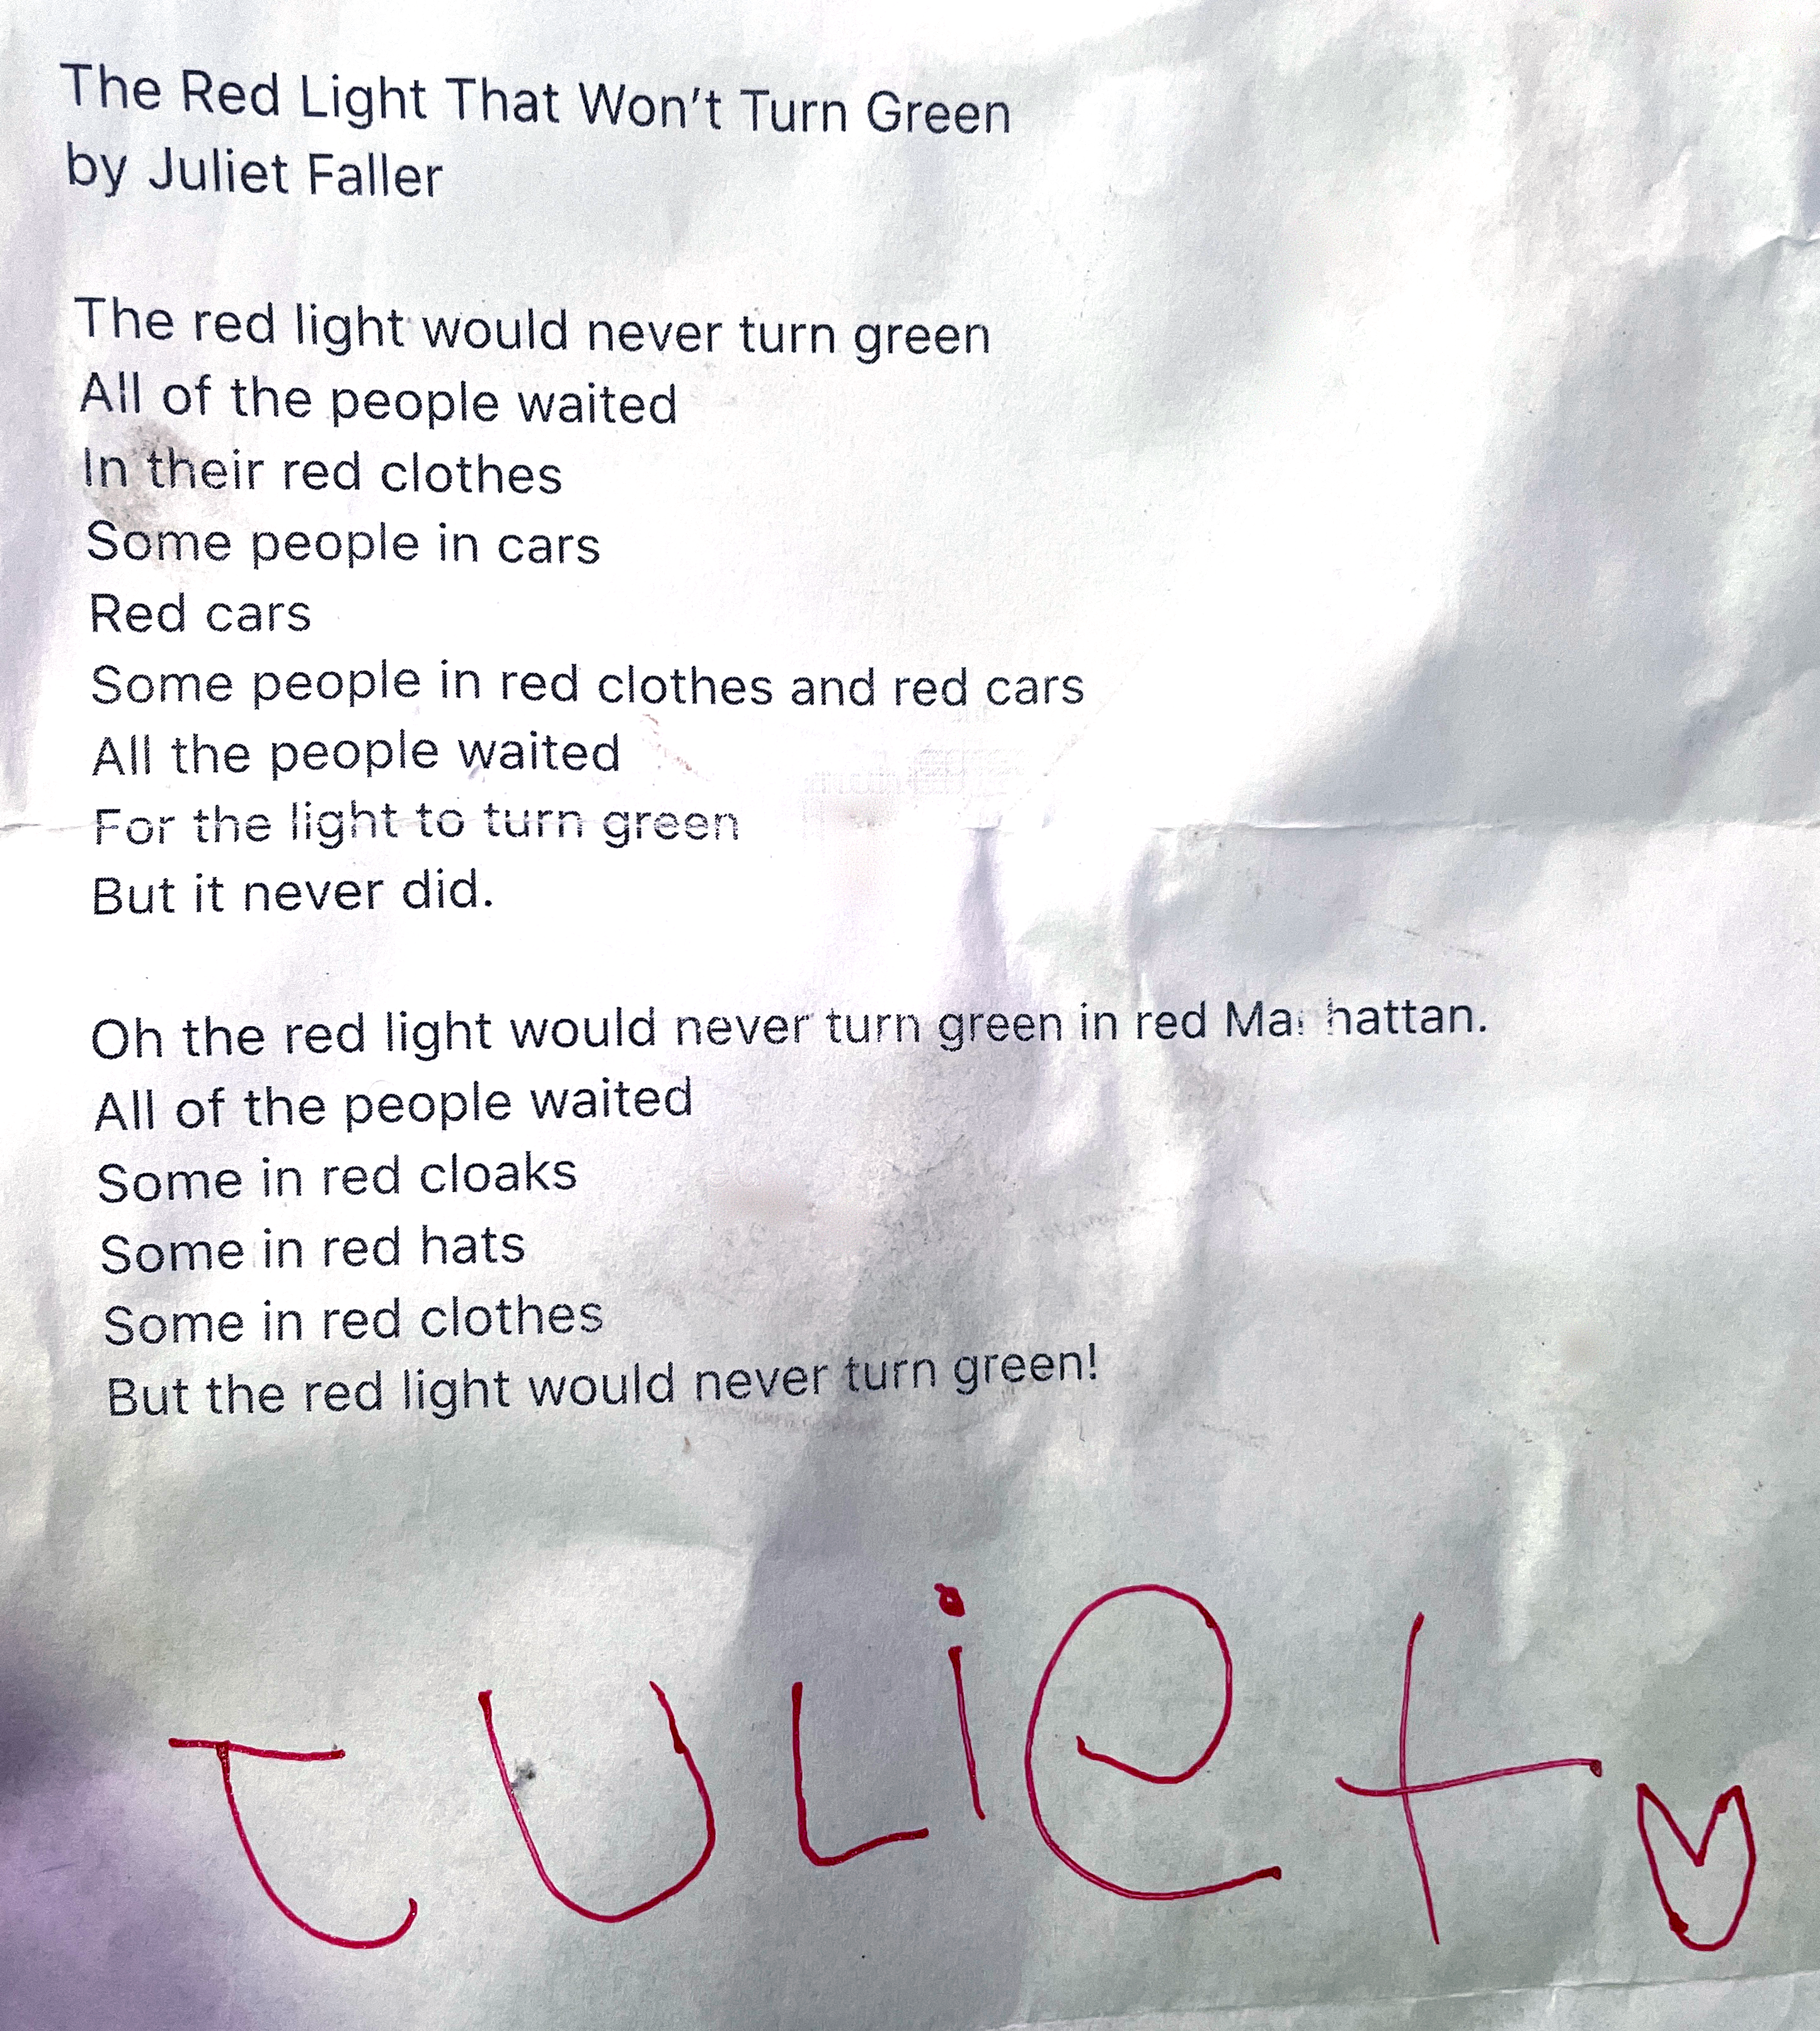 The Red Light That Won't Turn Green
by Juliet Faller
The red light would never turn green
All of the people waited
In their red clothes
Some people in cars
Red cars
Some people in red clothes and red cars
All the people waited
For the light to turn green
But it never did.
Oh the red light would never turn green in red Manhattan.
All of the people waited
Some in red cloaks
Some in red hats
Some in red clothes
But the red light would never turn green!
JULiet